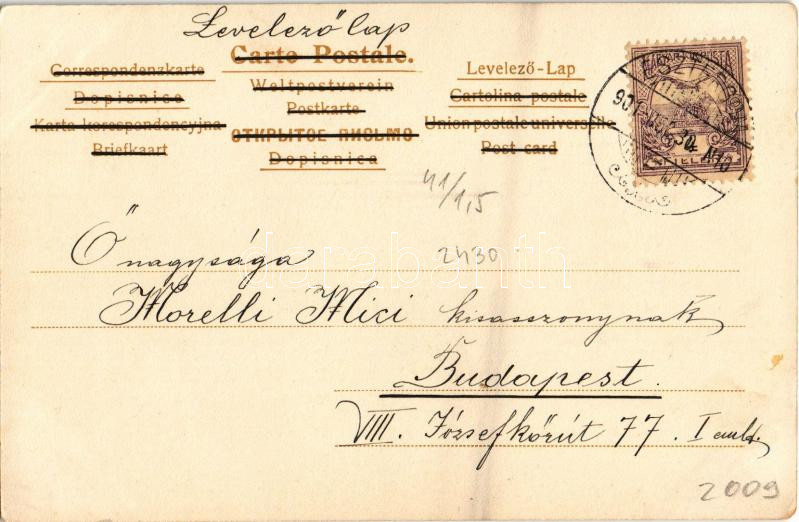 Levelező lap
Carte Postale.
Correspondenzkarte
Dopisnice
Karta korespondencyjna
Briefkaart
Weltpostverein
Postkarte
ОТКРЫТОЕ ПИСЬМО
Dopisnica
Levelező-Lap
Cartolina postale
Union postale universelle
Post card
41/1,5
2430
Őnagysága
Morelli Mici kisasszonynak
Budapest.
VIII. Józsefkörút 77. I em
2009
darabanth